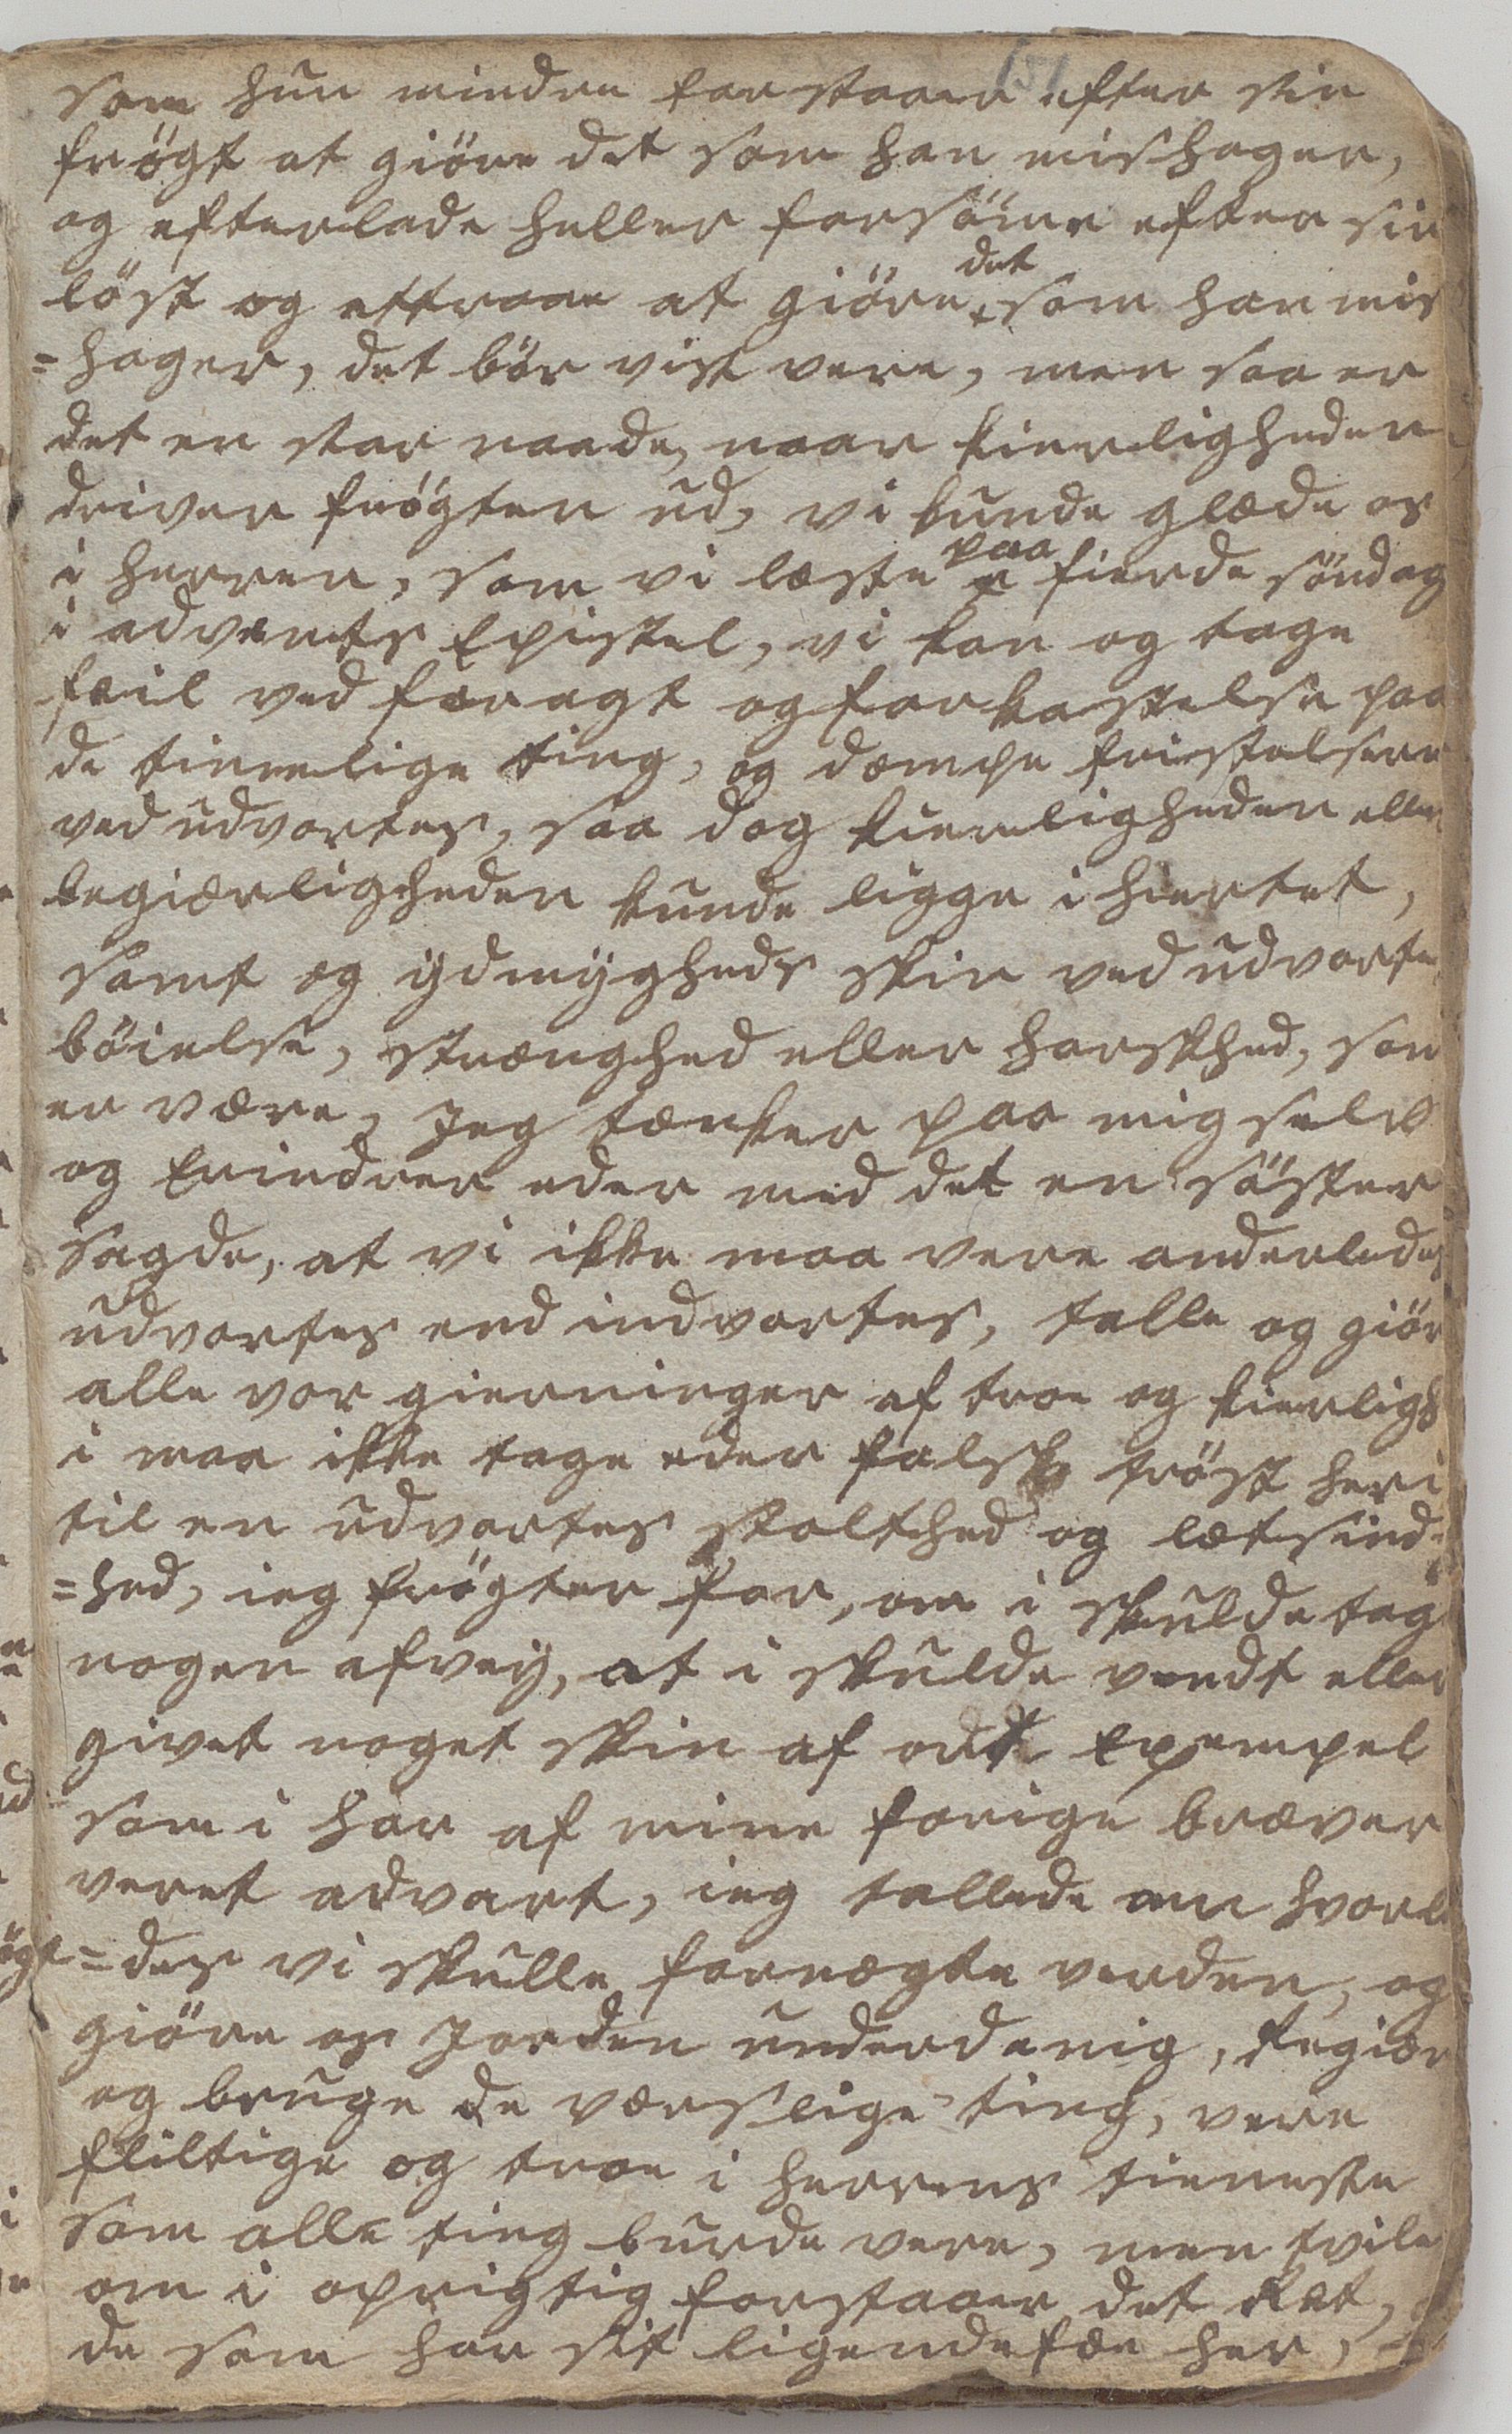 som hun mindre forstaaer efter sin
frögt at giöre det som han mishager,
og efterlade heller forsöme efter sin
löst og attraae at giöre det som han mis
=hager, det bör vist vere, men saa er
det en stor naade, naar kierligheden
driver frögten ud, vi kunde glæde os
i herren, som vi læste paa fierde söndag
i advents Epistel, vi kan og tage
feil ved foragt og forkastelse paa
de timelige ting, og dæmpe fristelsene
ved udvortes, saa dog kierligheden eller
begiærligheden kunde ligge i hiertet,
samt og ÿdmÿgheds skin ved udvortes
böielse, strænghed eller harskhed, som
er være, Jeg tænker paa mig selv
og Erindrer eder med det en söster
sagde, at vi ikke maa vere anderledes
udvortes end indvortes, talle og giör
alle vor gierninger af troe og kierligh
i maa ikke tage eder falsk tröst heri
til en udvortes stolthed og letsind-
=hed, ieg frögter for, om i skulde tage
nogen afveÿ, at i skulde vendt eller
givet noget skin af ondt Exempel
som i har af mine forige bræver
veret advart, ieg tallede om hvorle
=des vi skulle fornægte verden, og
giöre os Jorden underdanig, Regiere
og bruge de værslige ting, vere
flittige og troe i herrens tieneste
som alle ting burde vere, men tvile
om i oprigtig forstaaer det Ret,
de som har sit ligendefæe her,